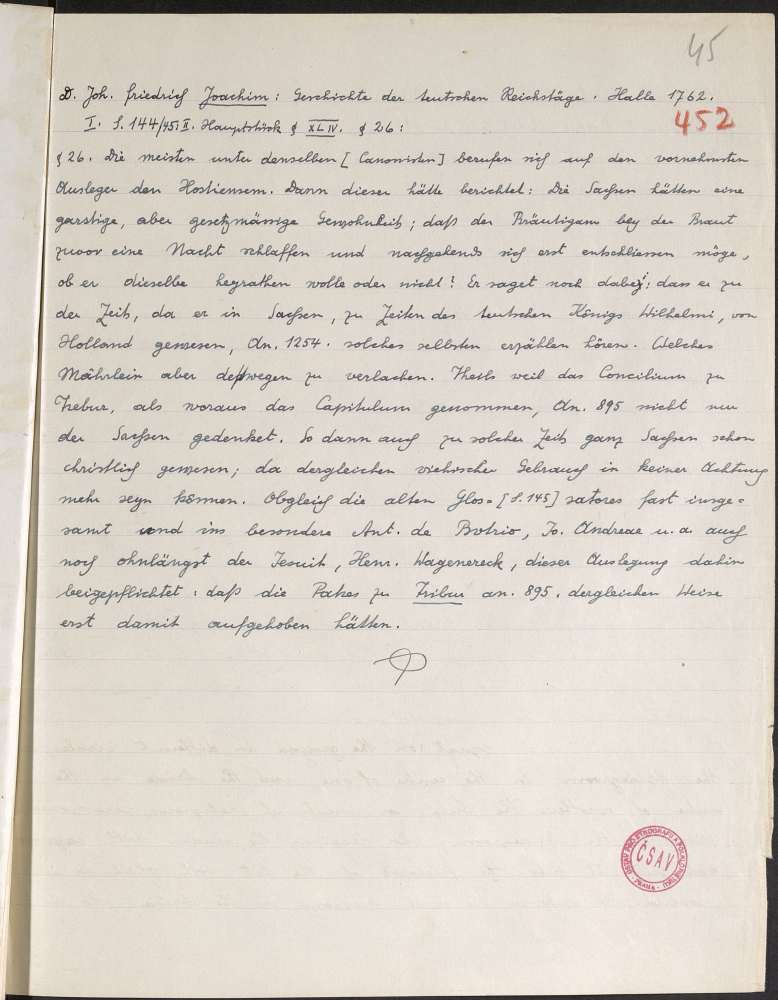 45
D. Joh. Friedrich Joachim: Geschichte der teutschen Reichstäge. Halle 1762.
I. S. 144/45: II. Hauptstück § XLIV. § 26:
452
§ 26. Die meisten unter denselben [Canonisten] berufen sich auf den vornehmsten
Ausleger den Hostiensem. Dann dieser hätte berichtet: Die Sachsen hätten eine
garstige, aber gesetzmässige Gewohnheit; daß der Bräutigam bey der Braut
zuvor eine Nacht schlaffen und nachgehends sich erst entschliessen möge,
ob er dieselbe heyrathen wolle oder nicht! Er saget noch dabey: dass er zu
der Zeit, da er in Sachsen, zu Zeiten des teutschen Königs Wilhelmi, von
Holland gewesen, An. 1254. solches selbsten erzählen hören. Welches
Mährlein aber deßwegen zu verlachen. Theils weil das Concilium zu
Trebur, als woraus das Capitulum genommen, An. 895 nicht nur
der Sachsen gedenket. So dann auch zu solcher Zeit ganz Sachsen schon
christlich gewesen; da dergleichen viehischer Gebrauch in keiner Achtung
mehr seyn können. Obgleich die alten Glos= [S. 145] satores fast insge=
samt und ins besondere Ant. de Butrio, Jo. Andreae u. a. auch
noch ohnlängst der Jesuit, Henr. Wagenereck, dieser Auslegung dahin
beigepflichtet: daß die Patres zu Tribur an. 895. dergleichen Weise
erst damit aufgehoben hätten.
ÚSTAV PRO ETNOGRAFII A FOLKLORISTIKU
ČSAV
PRAHA